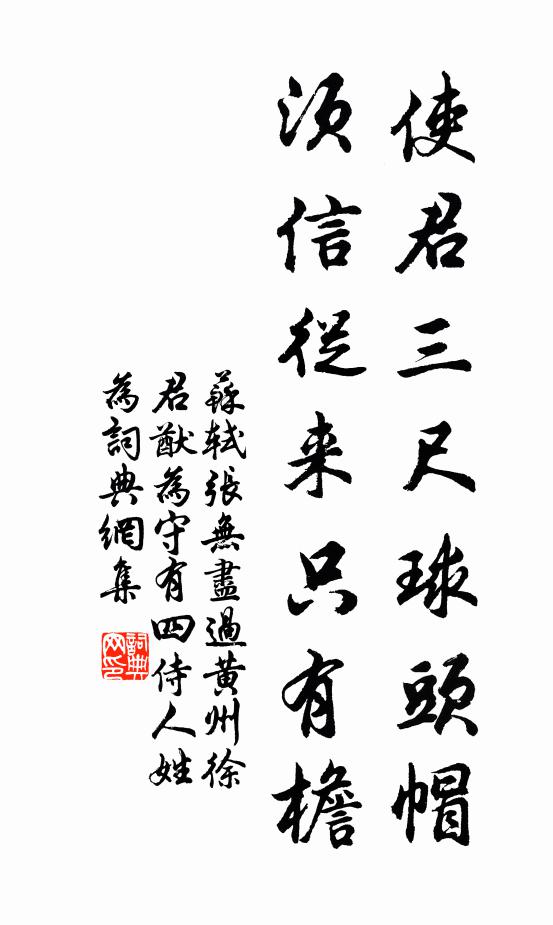 使君三尺球頭帽
須信從来只有檐
蘇軾張無盡過黃州徐
君猷為守有四侍人姓
為詞典網集
詞典
网印